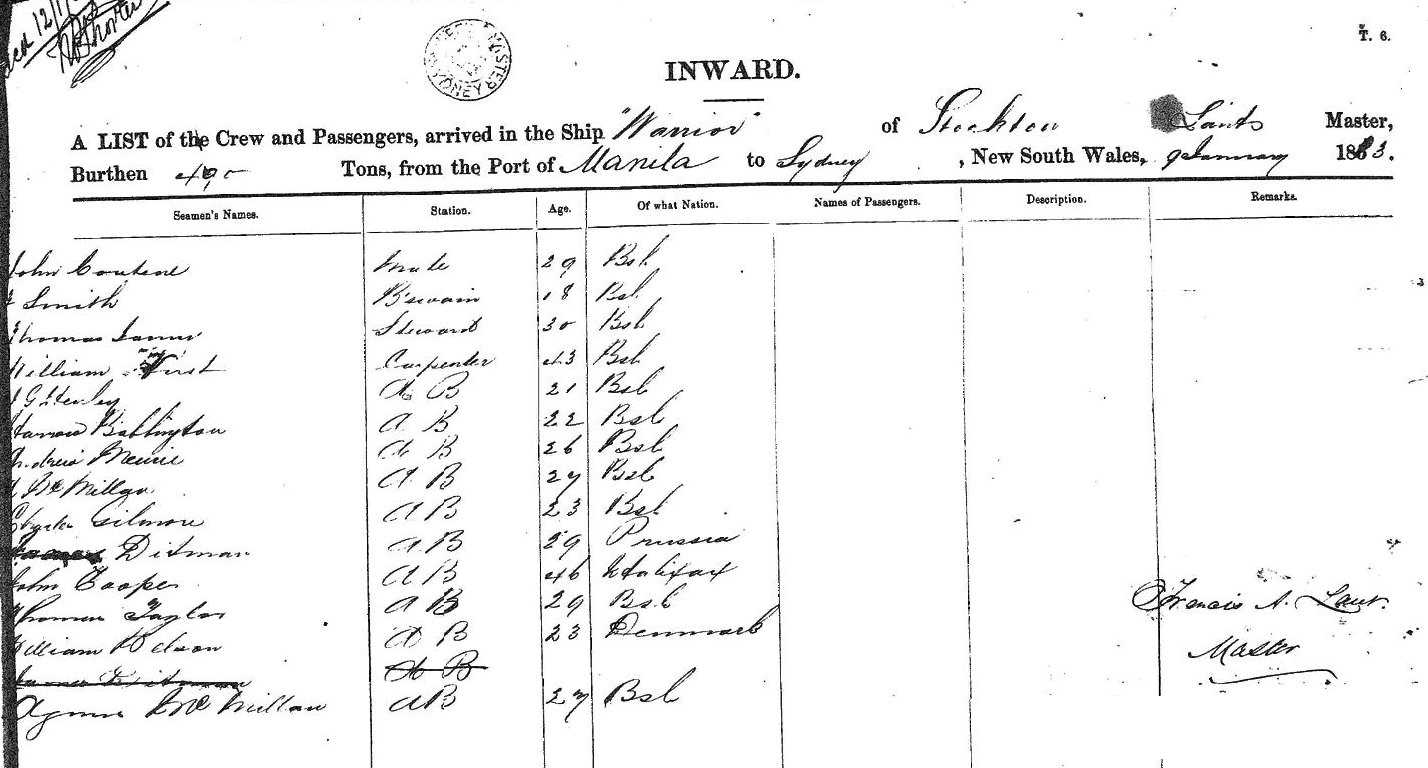 T. 6.
INWARD.
A LIST of the Crew and Passengers, arrived in the Ship "Warrior" of Stockton Master,
Burthen 490 Tons, from the Port of Manila to Sydney, New South Wales, 9 January 1883.
Seamen's Names. Station. Age. Of what Nation. Names of Passengers. Description. Remarks.
John Mate 29 Bsh
Smith B'swain 18 Bsh
Thomas James Steward 30 Bsh
William Carpenter 43 Bsh
G Henley A B 21 Bsh
Babbington A B 22 Bsh
Andrew A B 26 Bsh
McMillan A B 27 Bsh
Gilmore A B 23 Bsh
Ditman A B 29 Prussia
John Cooper A B 46 Halifax
Thomas Taylor A B 29 Bsh
William Nelson A B 23 Denmark
A B
McMillan A B 27 Bsh
Francis A.
Master